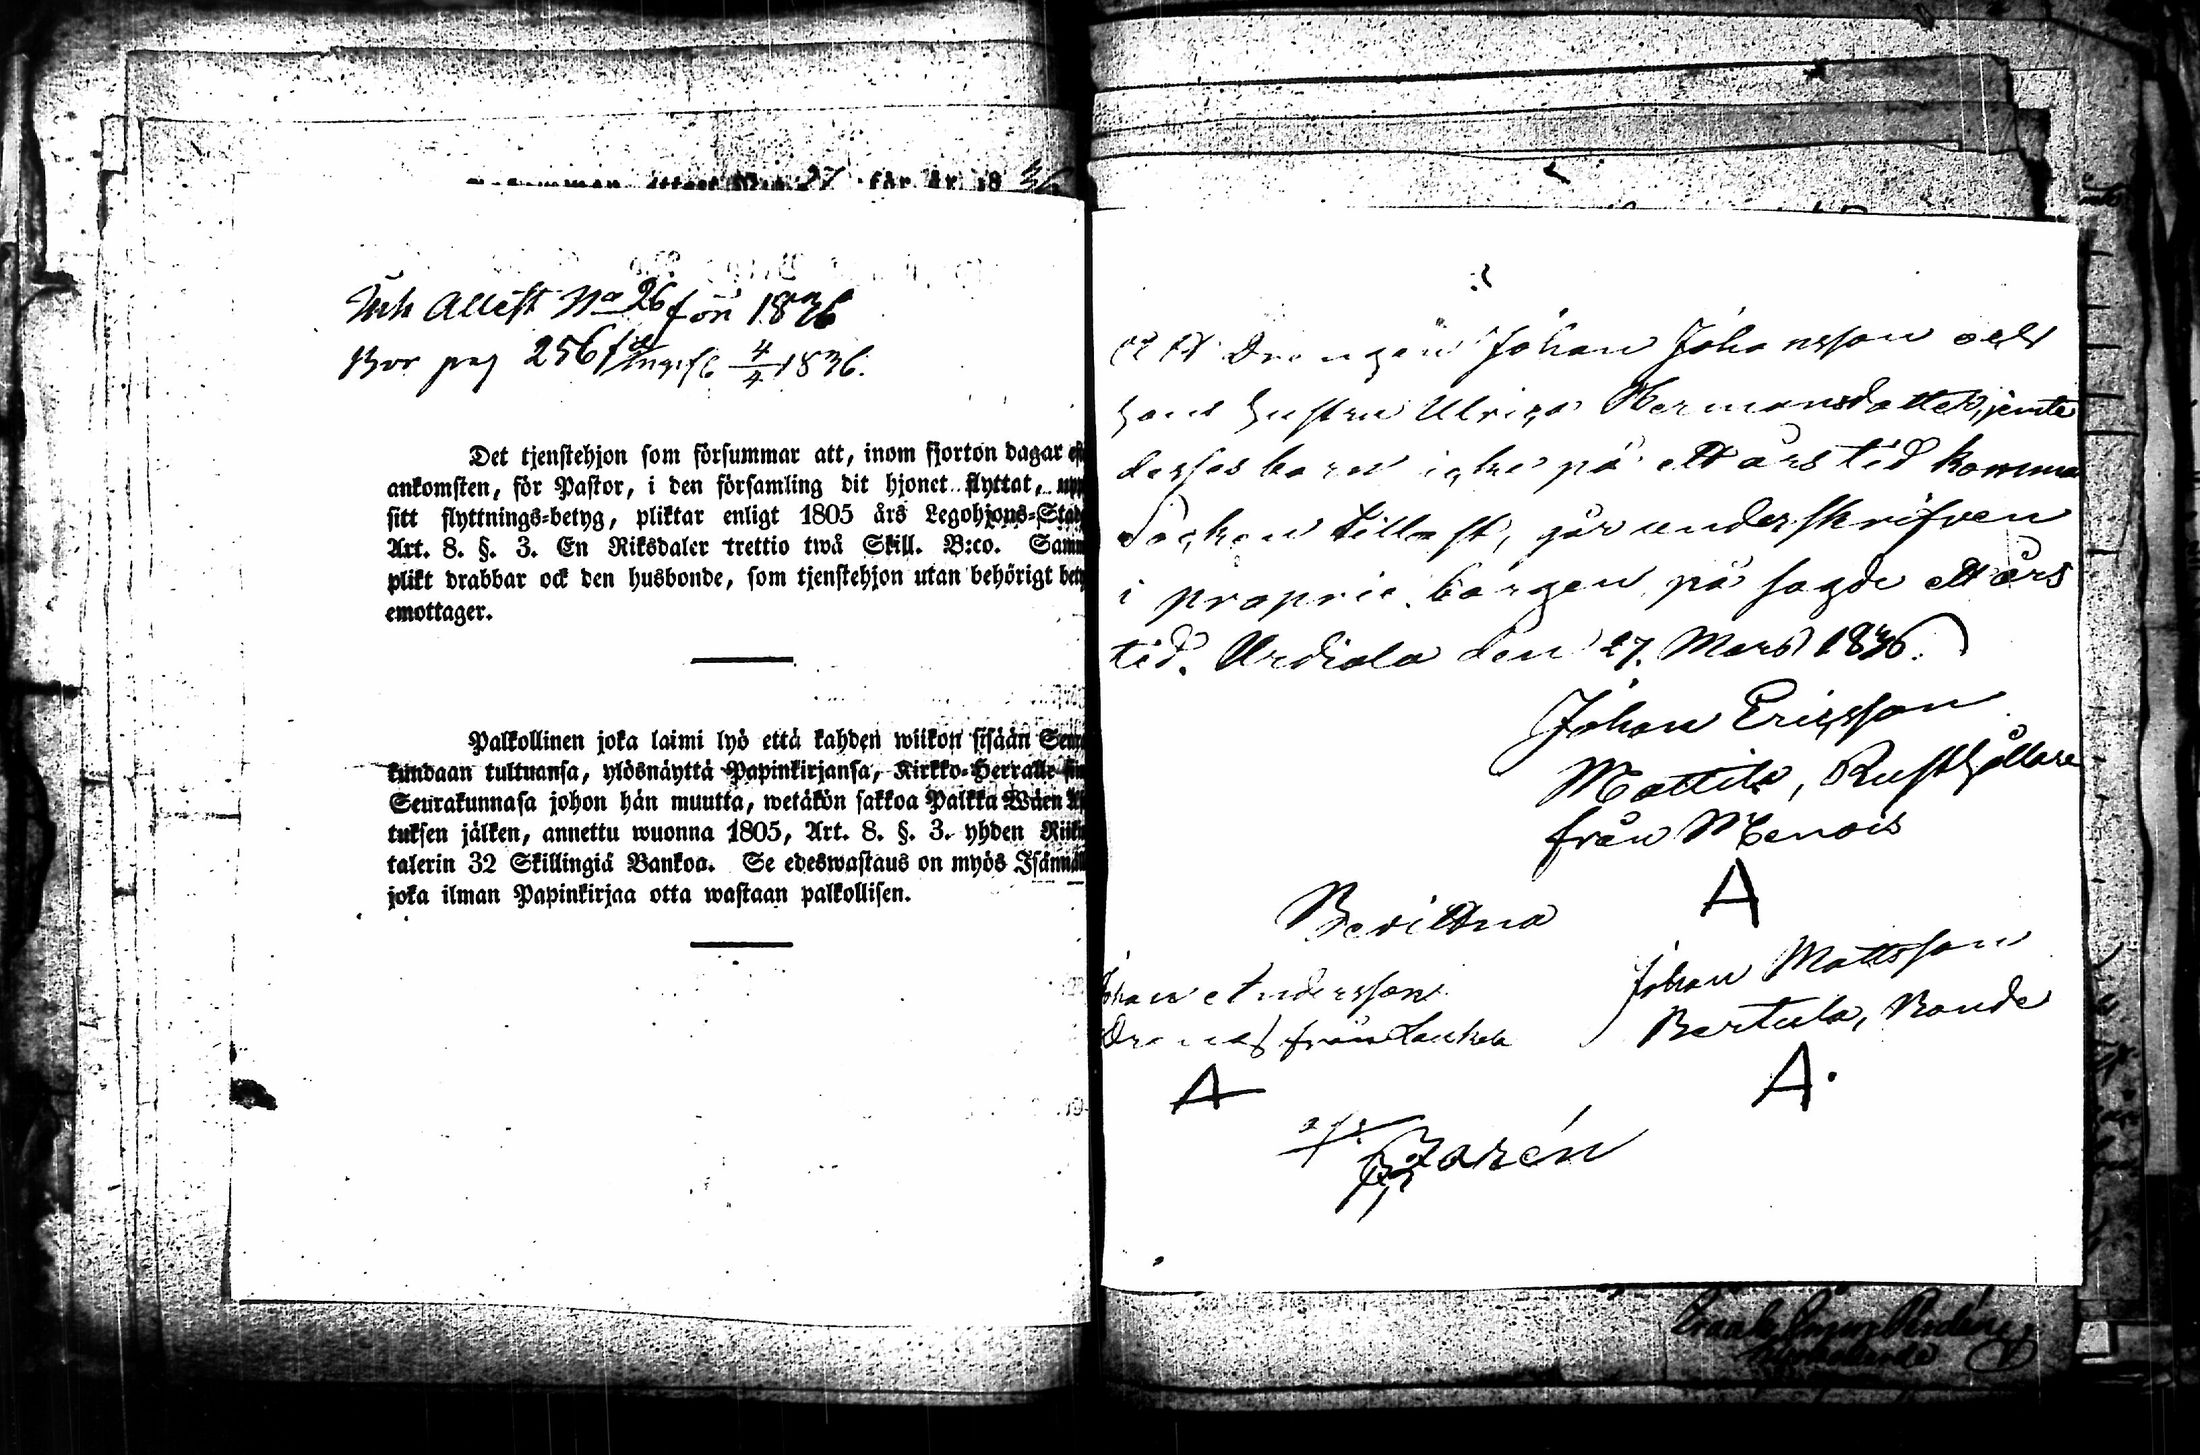 Attest No 27 för År 1836
Ink Attest No 26 för 1836
Bor pag 256 4/4 1836.
Det tjenstehjon som försummar att, inom fjorton dagar ef
ankomsten, för Pastor, i den församling dit hjonet flyttat, upp
sitt flyttnings-betyg, pliktar enligt 1805 års Legohjons-Stad
Art. 8. §. 3. En Riksdaler trettio twå Skill. B:co. Samm
plikt drabbar ock den husbonde, som tjenstehjon utan behörigt bety
emottager.
Palkollinen joka laimi lyö että kahden wiikon sisään Seura
kundaan tultuansa, ylösnäyttä Papinkirjansa, Kirkko-Herralle sii
Seurakunnasa johon hän muutta, wetäkön sakkoa Palkka Wäen As
tuksen jälken, annettu wuonna 1805, Art. 8. §. 3. yhden Riiki
talerin 32 Skillingiä Bankoa. Se edeswastaus on myös Isännäll
joka ilman Papinkirjaa otta wastaan palkollisen.
Att Drengen Johan Johansson och
hans hustru Ulrica Hermansdotter, jemte
derfas barn icke på ett års tid komma
Socken till last, går underskrifven
i proprie borgen på sagde ett års
tid. Urdiala den 27. Mars 1836.
Johan Ericsson
Mattila, Rusthållare
från Menois
A
Bevittna
Johan Andersson
Dreng från Laukela
A
Johan Mattsson
Bertula, Bonde
A.